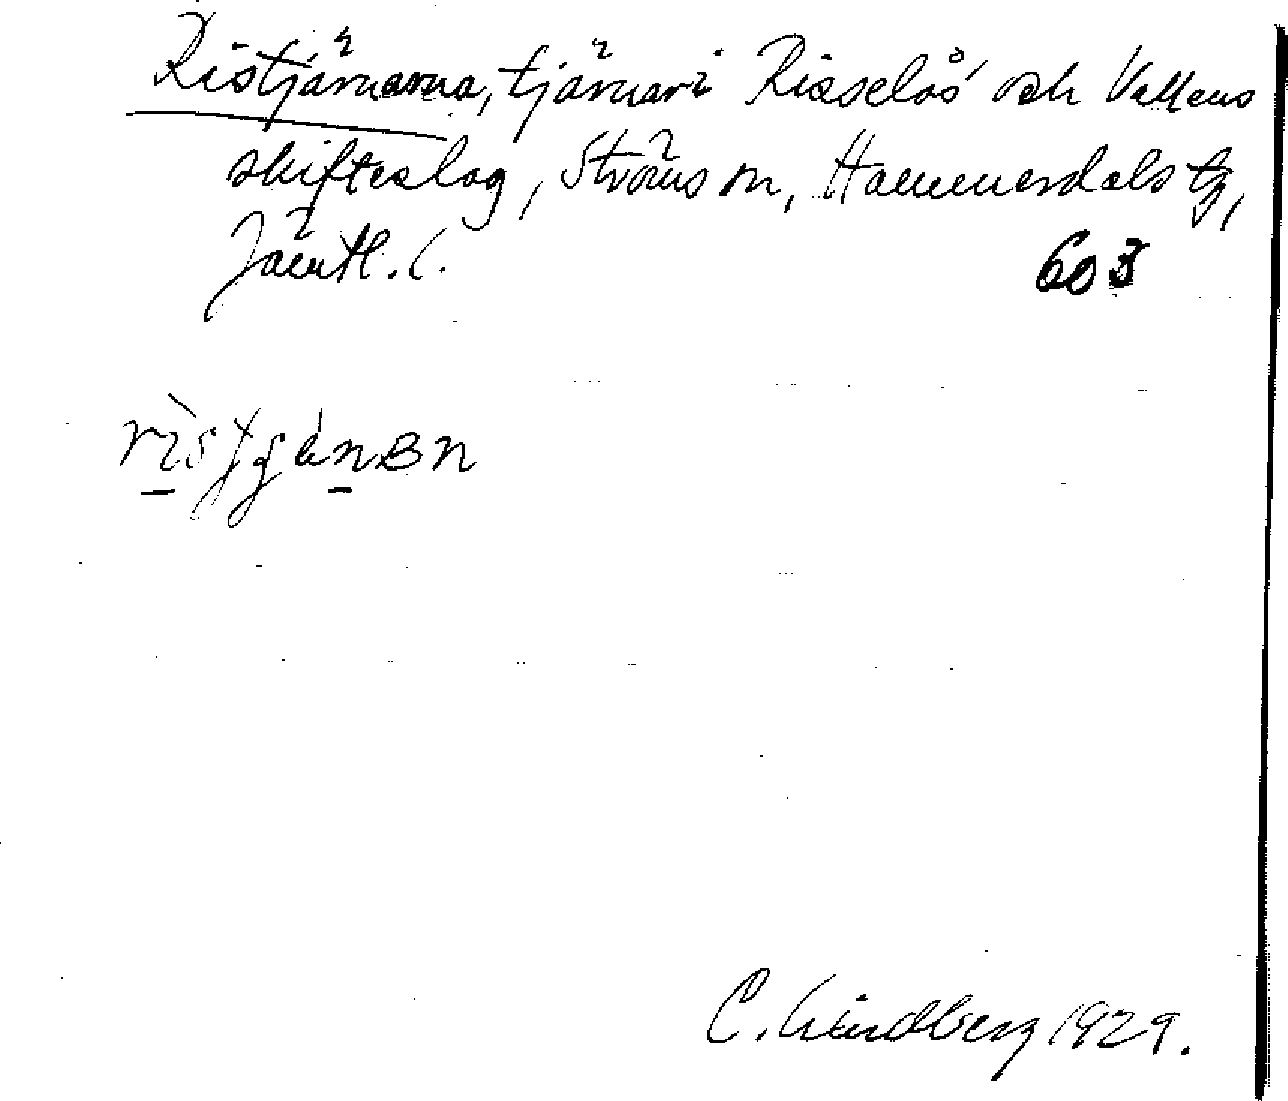 Ristjärnarna, tjärnar i Risselås och Vallens
skifteslag, Ströms sn, Hammerdals tg,
Jämtl. l.
603
C. Lindberg 1929.